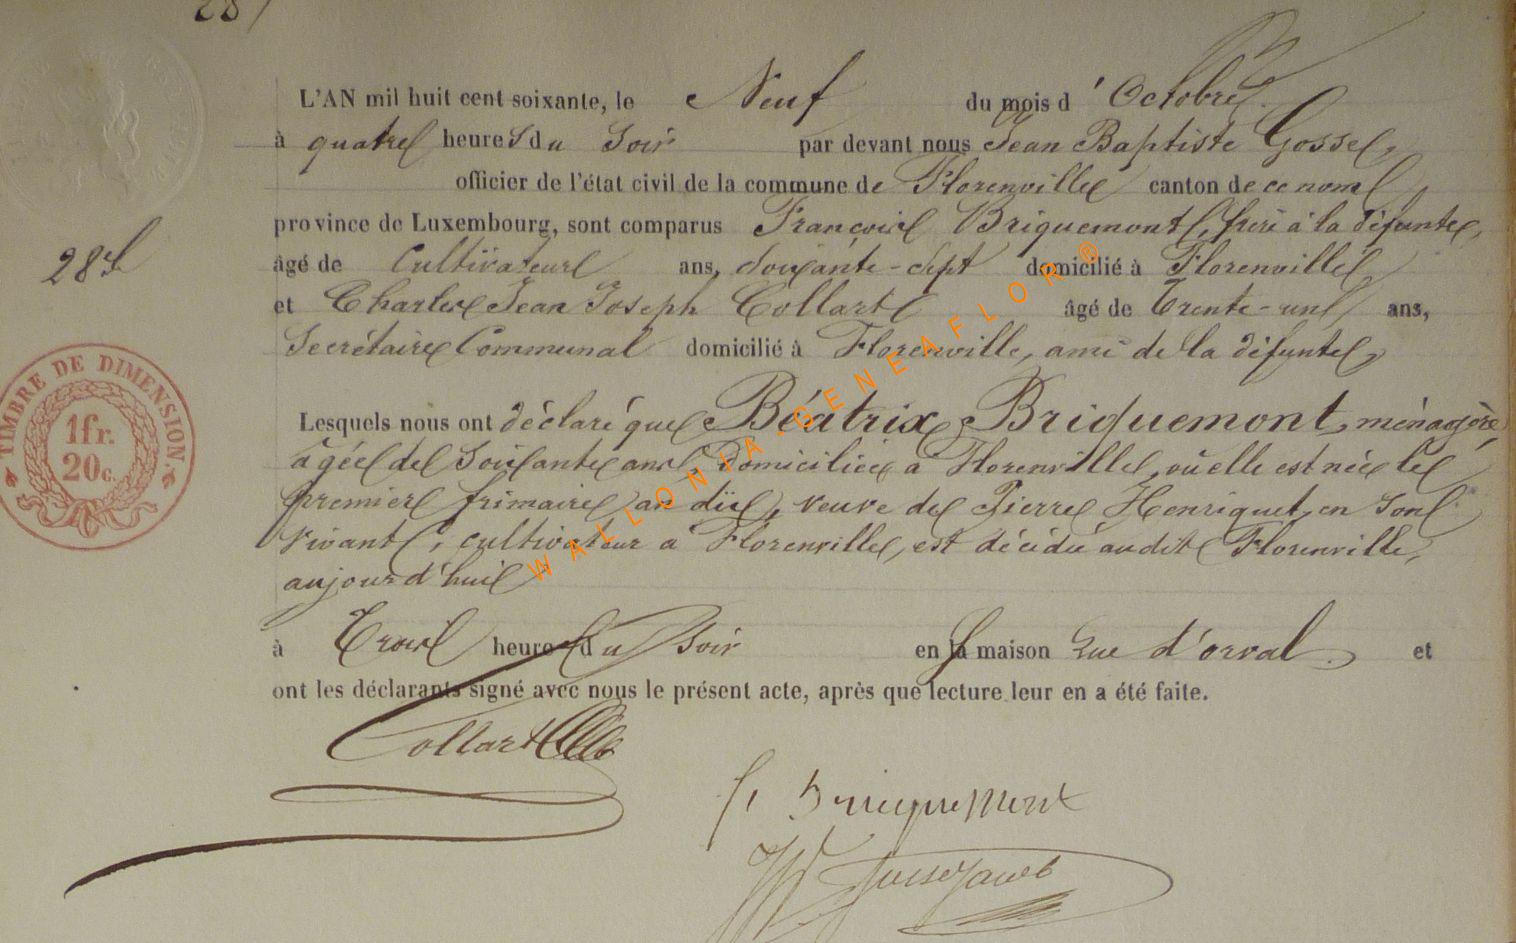 L'AN mil huit cent soixante, le Neuf du mois d'Octobre.
à quatre heures du Soir par devant nous Jean Baptiste Gosse,
officier de l'état civil de la commune de Florenville canton de ce nom,
province de Luxembourg, sont comparus François Briquemont, frère à la défunte,
28e
âgé de Cultivateur ans, soixante-sept domicilié à Florenville,
et Charles Jean Joseph Collart âgé de Trente-un ans,
Secrétaire Communal domicilié à Florenville, ami de la défunte,
Lesquels nous ont déclaré que Béatrix Briquemont, ménagère,
âgée de Soixante ans, Domiciliée à Florenville, où elle est née le
premier frimaire an dix, veuve de Pierre Henriquet, en son
vivant, cultivateur à Florenville, est décédée audit Florenville,
aujourd'hui
à Trois heures du Soir en la maison Rue d'orval. et
ont les déclarants signé avec nous le présent acte, après que lecture leur en a été faite.
Collart
f, Bricquemont
TIMBRE DE DIMENSION.
1fr.
20c.
WALLONIA-GENEAFLOR®